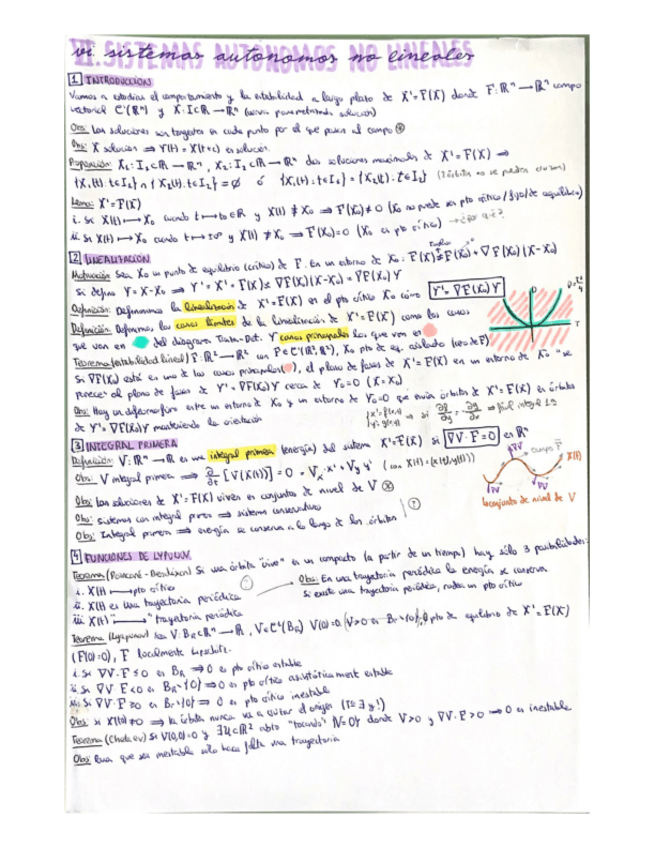 VI. SISTEMAS AUTÓNOMOS NO LINEALES
1 INTRODUCCIÓN
Vamos a estudiar el comportamiento y la estabilidad a largo plazo de X'=F(X) donde F:ℝⁿ→ℝⁿ campo
vectorial C¹(ℝⁿ) y X:I⊂ℝ→ℝⁿ (curva parametrizada solución)
Obs: Las soluciones son tangentes en cada punto por el que pasan al campo
Obs: X solución ⇒ Y(t)=X(t+c) es solución.
Proposición: X₁:I₁⊂ℝ→ℝⁿ, X₂:I₂⊂ℝ→ℝⁿ dos soluciones maximales de X'=F(X) ⇒
{X₁(t):t∈I₁}∩{X₂(t):t∈I₂}=∅ ó {X₁(t):t∈I₁}={X₂(t):t∈I₂} (2 órbitas no se pueden cruzar)
Lema: X'=F(X)
i. Si X(t)→X₀ cuando t→t₀∈ℝ y X(t)≠X₀ ⇒ F(X₀)≠0 (X₀ no puede ser pto crítico/fijo/de equilibrio)
ii. Si X(t)→X₀ cuando t→±∞ y X(t)≠X₀ ⇒ F(X₀)=0 (X₀ es pto crítico) →¿por qué?
2 LINEALIZACIÓN
Motivación: Sea X₀ un punto de equilibrio (crítico) de F. En un entorno de X₀: F(X)≅F(X₀)+∇F(X₀)(X-X₀)
Si defino Y=X-X₀ ⇒ Y'=X'=F(X)≅∇F(X₀)(X-X₀)=∇F(X₀)Y
Definición: Definimos la linealización de X'=F(X) en el pto crítico X₀ como Y'=∇F(X₀)Y
Definición: Definimos los casos límites de la linealización de X'=F(X) como los casos
que van en del diagrama Traza-Det. Y casos principales los que van en
Teorema (estabilidad lineal) F:ℝ²→ℝ² con F∈C¹(ℝ²,ℝ²), X₀ pto de eq. aislado (cero de F)
Si ∇F(X₀) está en uno de los casos principales, el plano de fases de X'=F(X) en un entorno de X₀ "se
parece" al plano de fases de Y'=∇F(X₀)Y cerca de Y₀=0 (X=X₀)
Obs: Hay un difeomorfismo entre un entorno de X₀ y un entorno de Y₀=0 que envía órbitas de X'=F(X) en órbitas
de Y'=∇F(X₀)Y manteniendo la orientación
3 INTEGRAL PRIMERA
Definición: V:ℝⁿ→ℝ es una integral primera (energía) del sistema X'=F(X) si ∇V·F=0 en ℝⁿ
Obs: V integral primera ⇒ ∂/∂t[V(X(t))]=0=Vₓ·x'+V_y y' (con X(t)=(x(t),y(t)))
campo F
X(t)
∇V
Obs: Las soluciones de X'=F(X) viven en conjuntos de nivel de V
Obs: sistemas con integral primera ⇒ sistema conservativo
Obs: Integral primera ⇒ energía se conserva a lo largo de las órbitas
conjunto de nivel de V
4 FUNCIONES DE LYPUNOV
Teorema (Poincaré-Bendixson) Si una órbita "vive" en un compacto (a partir de un tiempo) hay sólo 3 posibilidades:
i. X(t)→pto crítico
ii. X(t) es una trayectoria periódica
iii. X(t)→"trayectoria periódica
Obs: En una trayectoria periódica la energía se conserva
Si existe una trayectoria periódica, rodea un pto crítico
Teorema (Lyapunov) Sea V:B_R⊂ℝⁿ→ℝ, V∈C¹(B_R) V(0)=0, V>0 en B_R\{0}, 0 pto de equilibrio de X'=F(X)
(F(0)=0), F localmente Lipschitz.
i. Si ∇V·F≤0 en B_R ⇒ 0 es pto crítico estable
ii. Si ∇V·F<0 en B_R\{0} ⇒ 0 es pto crítico asintóticamente estable
iii. Si ∇V·F>0 en B_R\{0} ⇒ 0 es pto crítico inestable
Obs: si X(t₀)≠0 ⇒ la órbita nunca va a cruzar el origen (T≅∃y!)
Teorema (Chetaev) Si V(0,0)=0 y ∃U⊂ℝ² abto "tocando" {0} donde V>0 y ∇V·F>0 ⇒ 0 es inestable
Obs: Para que sea inestable sólo hace falta una trayectoria